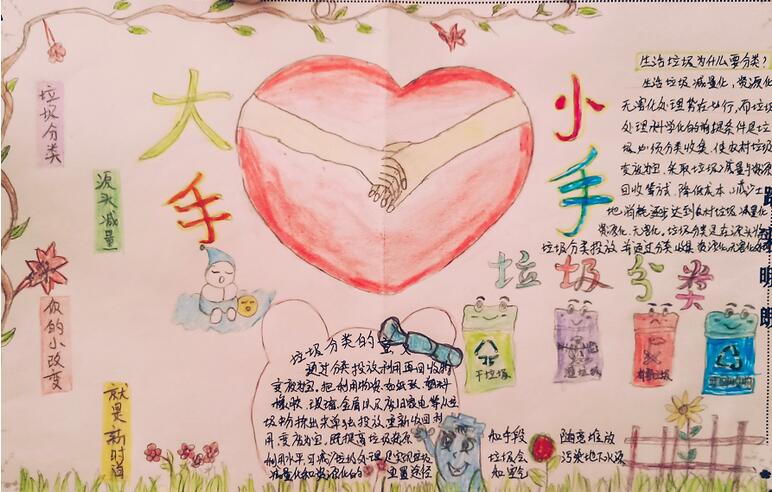 大手
小手
垃圾分类
垃圾分类
源头减量
你的小改变
就是新时尚
生活垃圾为什么要分类?
生活垃圾减量化,资源化
无害化处理势在必行,而垃圾
处理科学化的前提条件是垃
圾
分类收集,使农村垃圾
变废为宝,采取垃圾减量与资源
回收等方式,降低成本,减少土
地消耗逐步达到农村垃圾减量化
资源化,无害化,垃圾分类是在源头将
垃圾分类投放,并通过分类收集
垃圾分类的意义
通过分类投放利用再回收将
变废为宝,把利用物资,如纸张,塑料
橡胶,玻璃,金属以及废旧家电等从垃
圾中挑出来单独投放,重新收回利
用变废为宝,既提高垃圾资源
利用水平,可减少垃圾处理
减量化和资源化的重要途径
干垃圾
湿垃圾
有害垃圾
和手段
垃圾会
和空气
随意堆放
污染地下水源
明朗